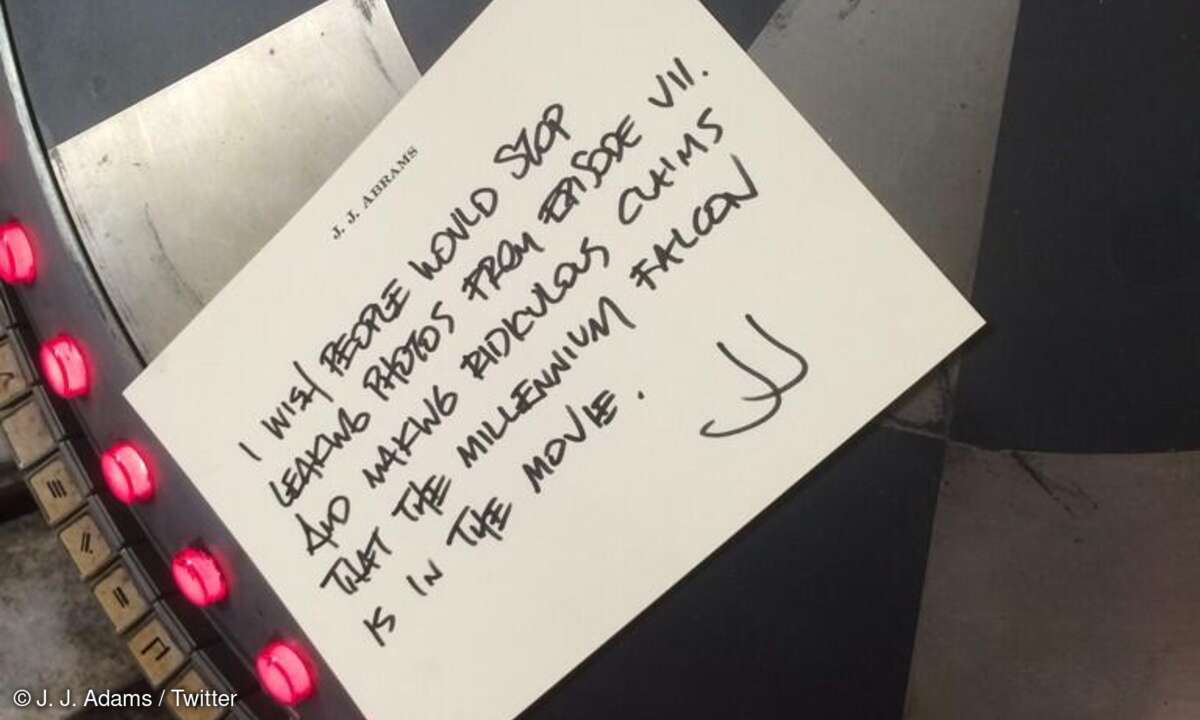 J. J. ABRAMS
I WISH PEOPLE WOULD STOP
LEAKING PHOTOS FROM EPISODE VII.
AND MAKING RIDICULOUS CLAIMS
THAT THE MILLENNIUM FALCON
IS IN THE MOVIE.
JJ
© J. J. Adams / Twitter